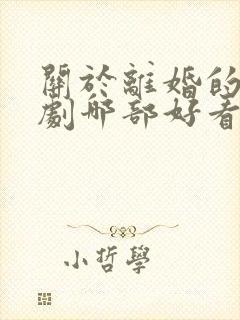 關於離婚的
劇那部好看
小哲學